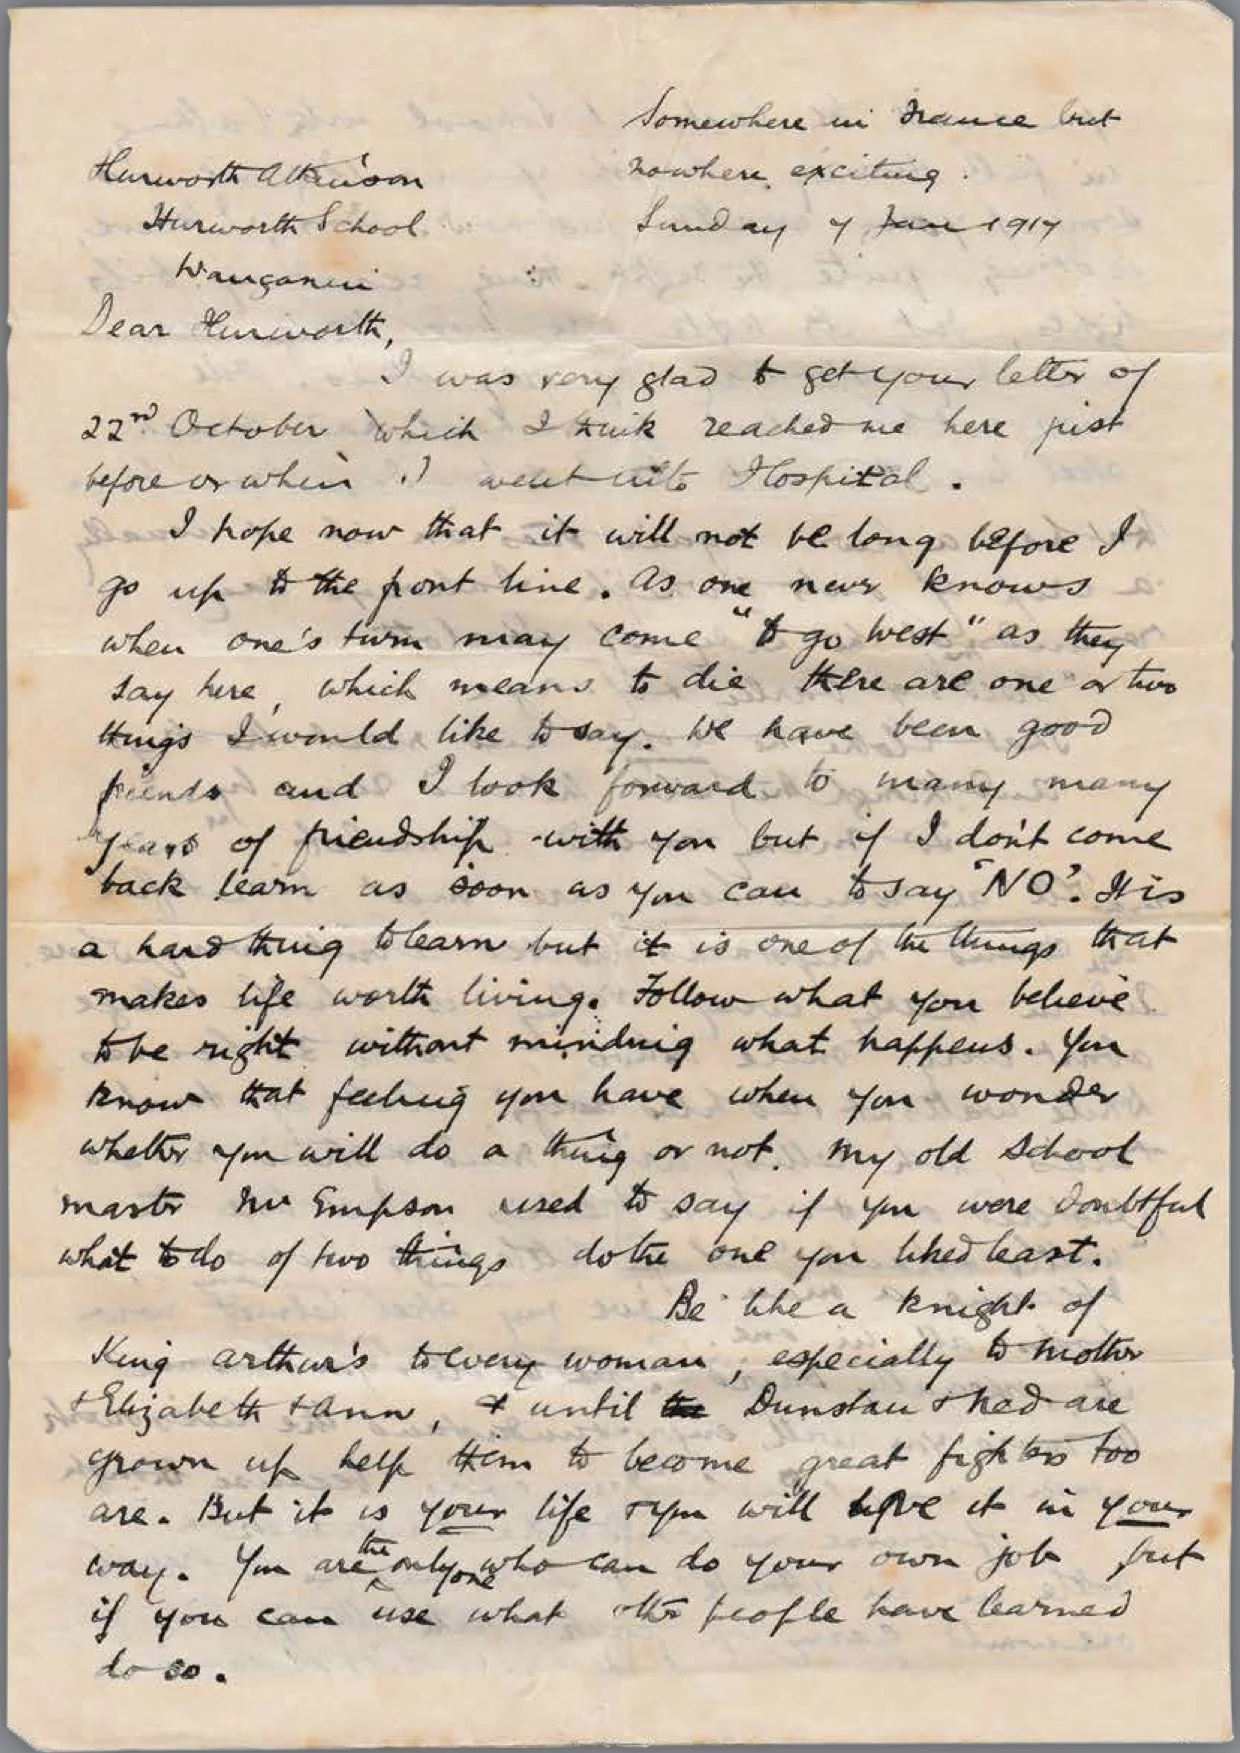 Somewhere in France but
nowhere exciting.
Sunday 7 Jan 1917
Hurworth Atkinson
Hurworth School
Wanganui
Dear Hurworth,
I was very glad to get your letter of
22nd October which I think reached me here just
before or when I went into Hospital.
I hope now that it will not be long before I
go up to the front line. As one never knows
when one's turn may come "to go West" as they
say here, which means to die there are one or two
things I would like to say. We have been good
friends and I look forward to many many
years of friendship with you but if I don't come
back learn as soon as you can to say 'NO'. It is
a hard thing to learn but it is one of the things that
makes life worth living. Follow what you believe
to be right without minding what happens. You
know that feeling you have when you wonder
whether you will do a thing or not. My old School
master Mr Empson used to say if you were doubtful
what to do of two things do the one you liked least.
Be like a Knight of
King Arthur's to every woman, especially to Mother
+ Elizabeth + Ann, & until the Dunstan & Ned are
grown up help them to become great fighters too
are. But it is your life & you will live it in your
way. You are the only one who can do your own job but
if you can use what other people have learned
do so.